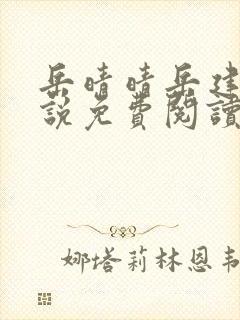 岳晴晴岳建
說免費閱讀
娜塔莉林恩韦